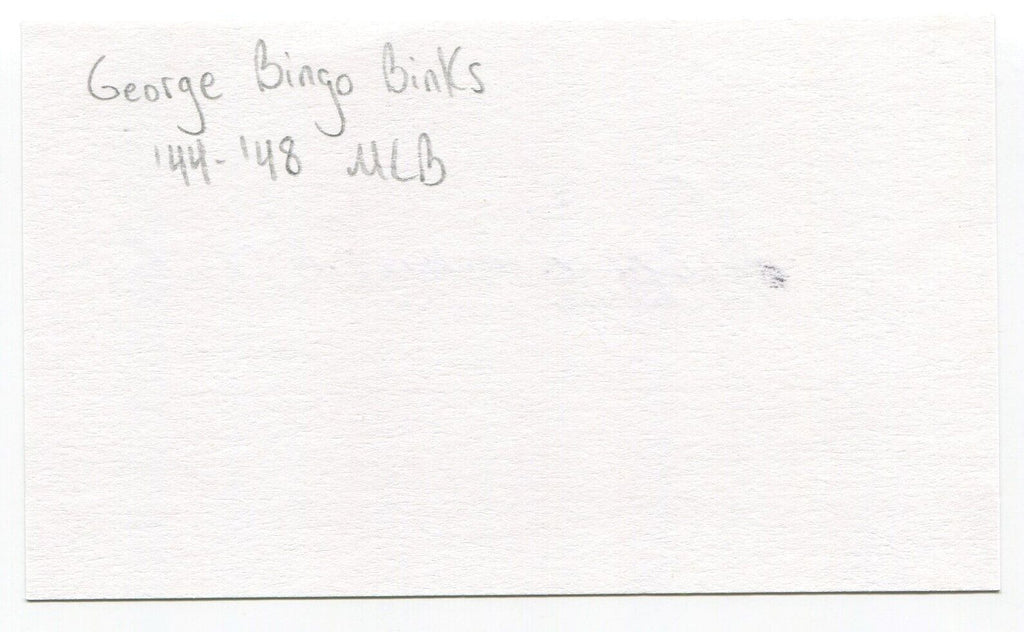 George Bingo Binks
'44-'48 MLB